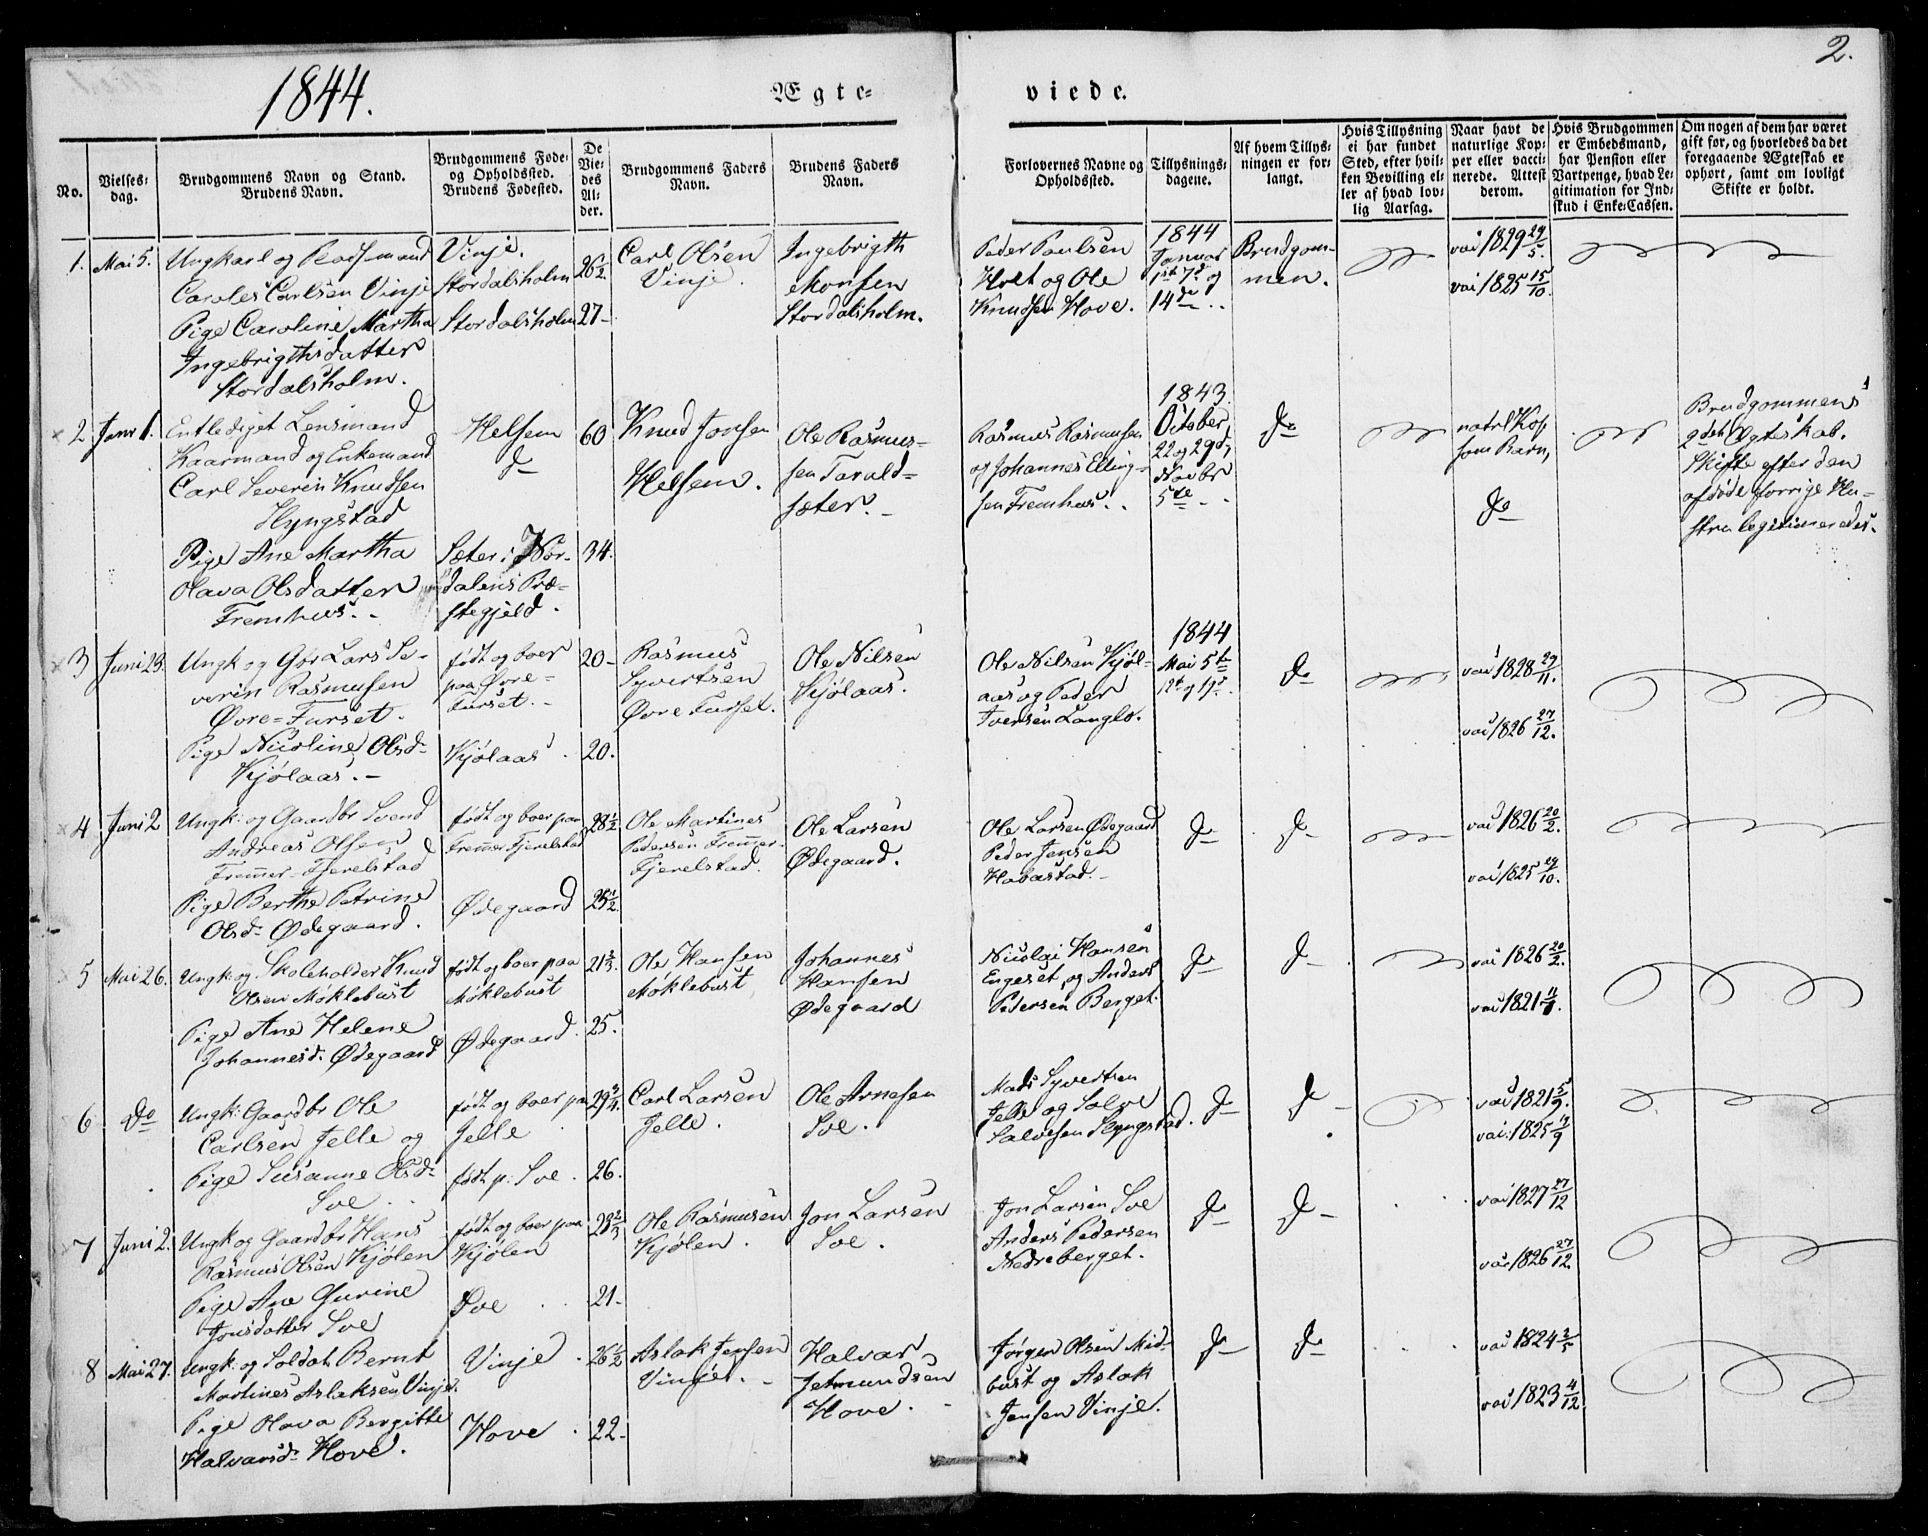 1844.
Ægte-
viede.
2.
No.
Vielses-
dag.
Brudgommens Navn og Stand.
Brudens Navn.
Brudgommens Føde-
og Opholdssted.
Brudens Fødested.
De
Vie-
des
Al-
der.
Brudgommens Faders
Navn.
Brudens Faders
Navn.
Forlovernes Navne og
Opholdssted.
Tillysnings-
dagene.
Af hvem Tillys-
ningen er for-
langt.
Hvis Tillysning
ei har fundet
Sted, efter hvil-
ken Bevilling el-
ler af hvad lov-
lig Aarsag.
Naar havt de
naturlige Kop-
per eller vacci-
nerede. Attest
derom.
Hvis Brudgommen
er Embedsmand,
har Pension eller
Vartpenge, hvad Le-
gitimation for Ind-
skud i Enke-Cassen.
Om nogen af dem har været
gift før, og hvorledes da det
foregaaende Ægteskab er
ophørt, samt om lovligt
Skifte er holdt.
1.
Mai 5.
Ungkarl og
Caroles Carlsen Vinje
Pige Caroline Martha
Ingebrigthsdatter
Stordalsholm.
Vinje.
Stordalsholm
Stordalsholm
26 1/2
27-
Carl Olsen
Vinje.
Ingebrigth
Monsen
Stordalsholm.
Peder Paulsen
Holt og Ole
Knudsen Hove.
1844
Januar
1ste 7de og
14de
Brudgom-
men.
vac 1829 29/5
vac 1825 15/10.
2
Juni 1.
Entlediget Lensmand
Kaarmand og Enkemand
Carl Severin Knudsen
Slyngstad
Pige Ane Martha
Olava Olsdatter
Fremhus.-
Helsem
do
Sæter i Nor-
dalens Præ-
stegjeld.
60
34.
Knud Jonsen
Helsem.
Ole Rasmus-
sen Tarald-
sæter.-
Rasmus Rasmusen
og Johannes Elling-
sen Fremhus..
1843.
October
22 og 29d,
Novbr
5te
do
natrl Kop
som Barn,
do
Brudgommens
2det Ægteskab.
Skifte efter den
afdøde forrige Hu-
stru legitimeredes.
3
Juni 23.
Ungk og Gbr Lars Se-
verin Rasmusen
Øvre=Furset.
Pige Nicoline Olsd-
Kjølaas.-
født og boer
paa Øvre=
furset.-
Kjølaas.
20-
20.
Rasmus
Syvertsen
Øvre Furset.
Ole Nilsen
Kjølaas.
Ole Nilsen Kjøl-
aas og Peder
Iversen Langlo.
1844
Mai 5te
12te og 19de.
do
vac 1828 29/11.
vac 1826 27/12.
4
Juni 2
Ungk: og Gaardbr Svend
Andreas Olsen
Fremer-Fjerelstad
Pige Berthe Petrine
Olsd- Ødegaard.
født og boer paa
Fremer Fjerelstad
Ødegaard
28 1/2
25 1/2.
Ole Martines
Pedersen Fremer-
Fjerelstad.
Ole Larsen
Ødegaard.
Ole Larsen Ødegaard
Peder Jensen
Habostad.-
do
do
vac 1826 20/2.
vac 1825 29/10.
5
Mai 26.
Ungk: og Skoleholder Knud
Olsen Møklebust
Pige Ane Helene
Johannesd- Ødegaard
født og boer paa
Møklebust
Ødegaard.
21 2/3.
25.
Ole Hansen
Møklebust
Johannes
Hansen
Ødegaard
Nicolai Hansen
Engeset, og Anders
Pedersen Berget.
do
do
vac 1826 20/2.
vac 1821
6
do
Ungk: Gaardbr Ole
Carlsen Jelle og
Pige Susanne Olsd-
Soe
født og boer paa
Jelle
født p. Soe.
29 3/4.
26.
Carl Larsen
Jelle.
Ole Arnesen
Soe.
Mads Syvertsen
Jelle og Salve
Salvesen Slyngstad.
do
do
vac 1821 5/9.
vac: 1825
7
Juni 2.
Ungk og Gaardbr Hans
Rasmus Olsen Kjølen
Pige Ane Gurine
Jonsdatter Soe
født og boer paa
Kjølen
Soe
23 2/3
21-
Ole Rasmusen
Kjølen.
Jon Larsen
Soe.
Jon Larsen Soe
Anders Pedersen
Nedreberget.
do
do
vac 1827 27/12
vac 1826 27/12.
8
Mai 27.
Ungk: og Soldat Bernt
Martines Aslaksen Vinje.
Pige Olava Bergitte
Halvarsd- Hove.
Vinje.
Hove.
26 1/2
22-
Aslak Jensen
Vinje.-
Halvar
Jetmundsen
Hove.
Jørgen Olsen Mid-
bust og Aslak
Jensen Vinje.
do
do
vac 1824 2/5
vac 1823 4/12.